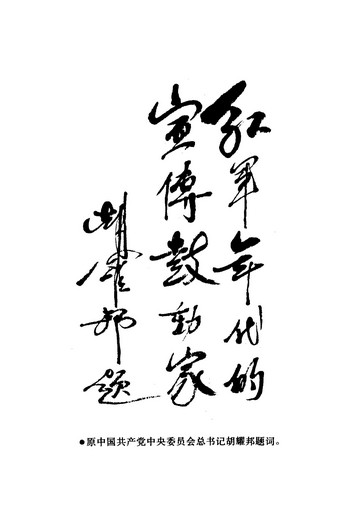 红军年代的
宣传鼓动家
胡耀邦题
●原中国共产党中央委员会总书记胡耀邦题词。